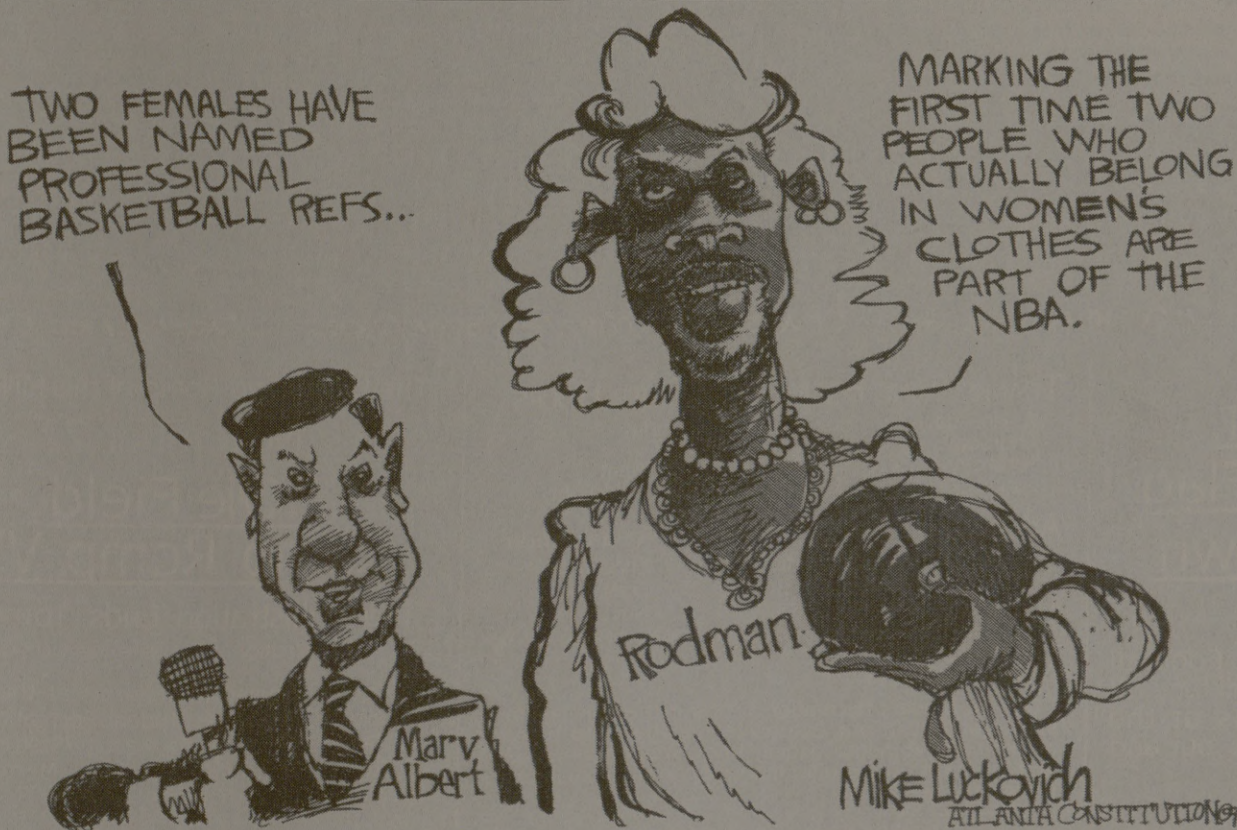 TWO FEMALES HAVE
BEEN NAMED
PROFESSIONAL
BASKETBALL REFS...
MARKING THE
FIRST TIME TWO
PEOPLE WHO
ACTUALLY BELONG
IN WOMEN'S
CLOTHES ARE
PART OF THE
NBA.
Rodman
Marv
Albert
MIKE LUCKOVICH
ATLANTA CONSTITUTION